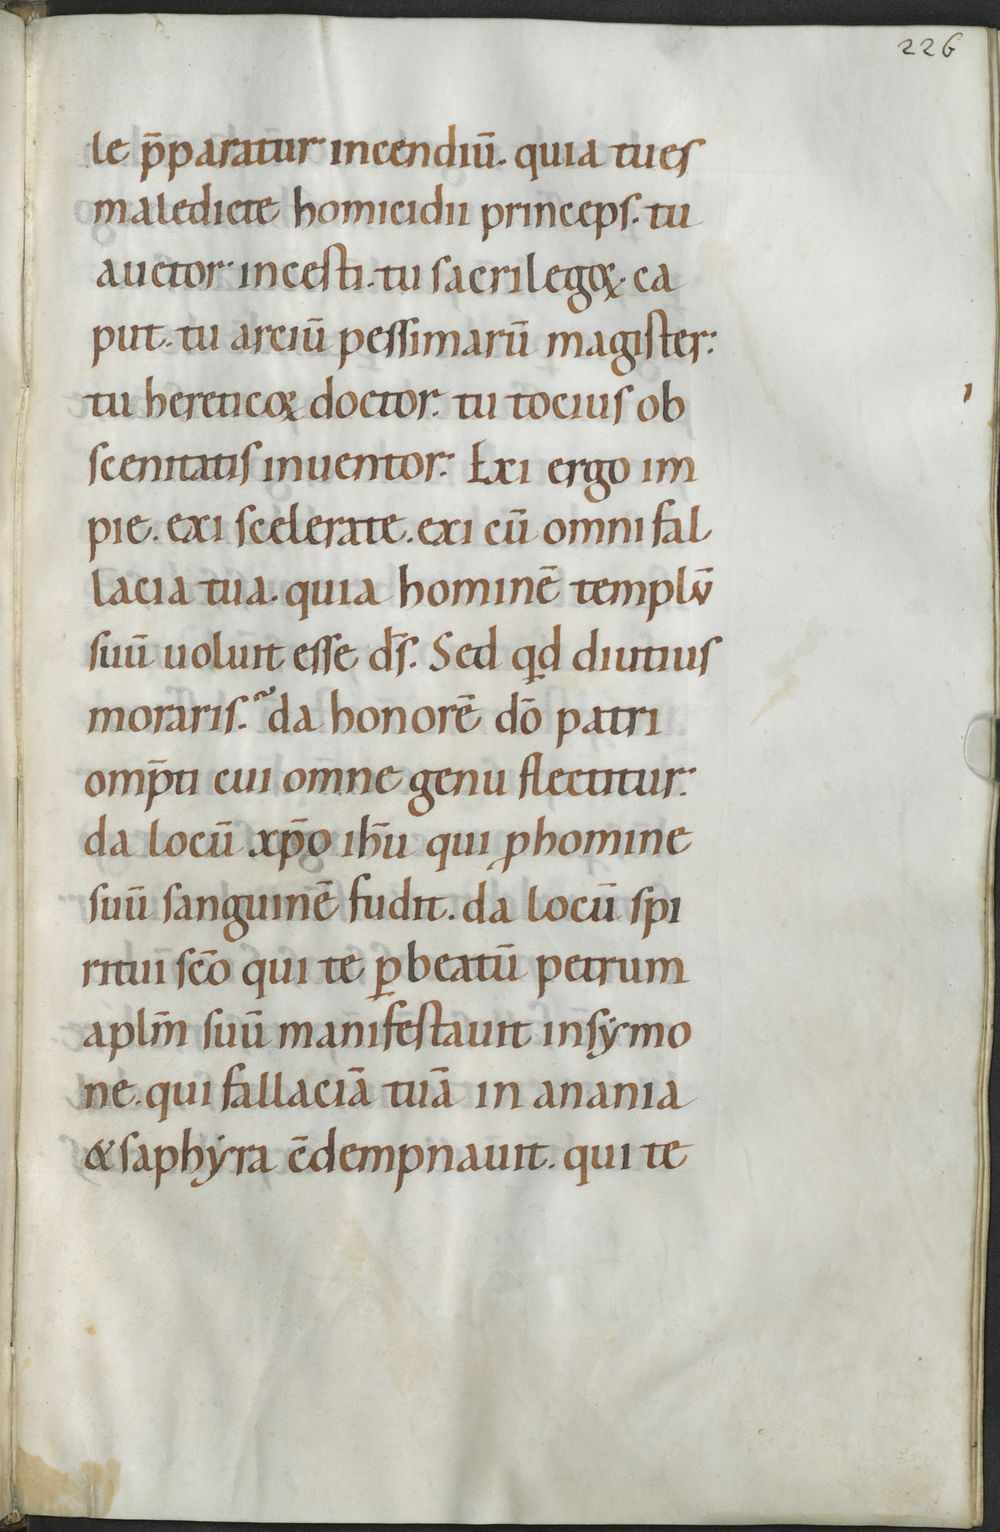 226
le p̄paratur incendiū. quia tu es
maledicte homicidii princeps. tu
auctor incesti. tu sacrilegoꝝ. ca
put. tu arciū pessimarū magister.
tu hereticoꝝ doctor. tu tocius ob
scenitatis inuentor. Exi ergo im
pie. exi scelerate. exi cū omni fal
lacia tua. quia hominē templū
suū uoluit esse d̄s. Sed qid diutius
moraris. da honorē dō patri
omp̄ti cui om̄ne genu flectitur.
da locū xp̄o ih̄u qui ꝓ homine
suū sanguinē fudit. da locū spi
ritui sc̄o qui te ꝑ beatū petrum
apl̄m suū manifestauit in sẏmo
ne. qui fallaciā tuā in anania
& saphẏra c̄dempnauit. qui te